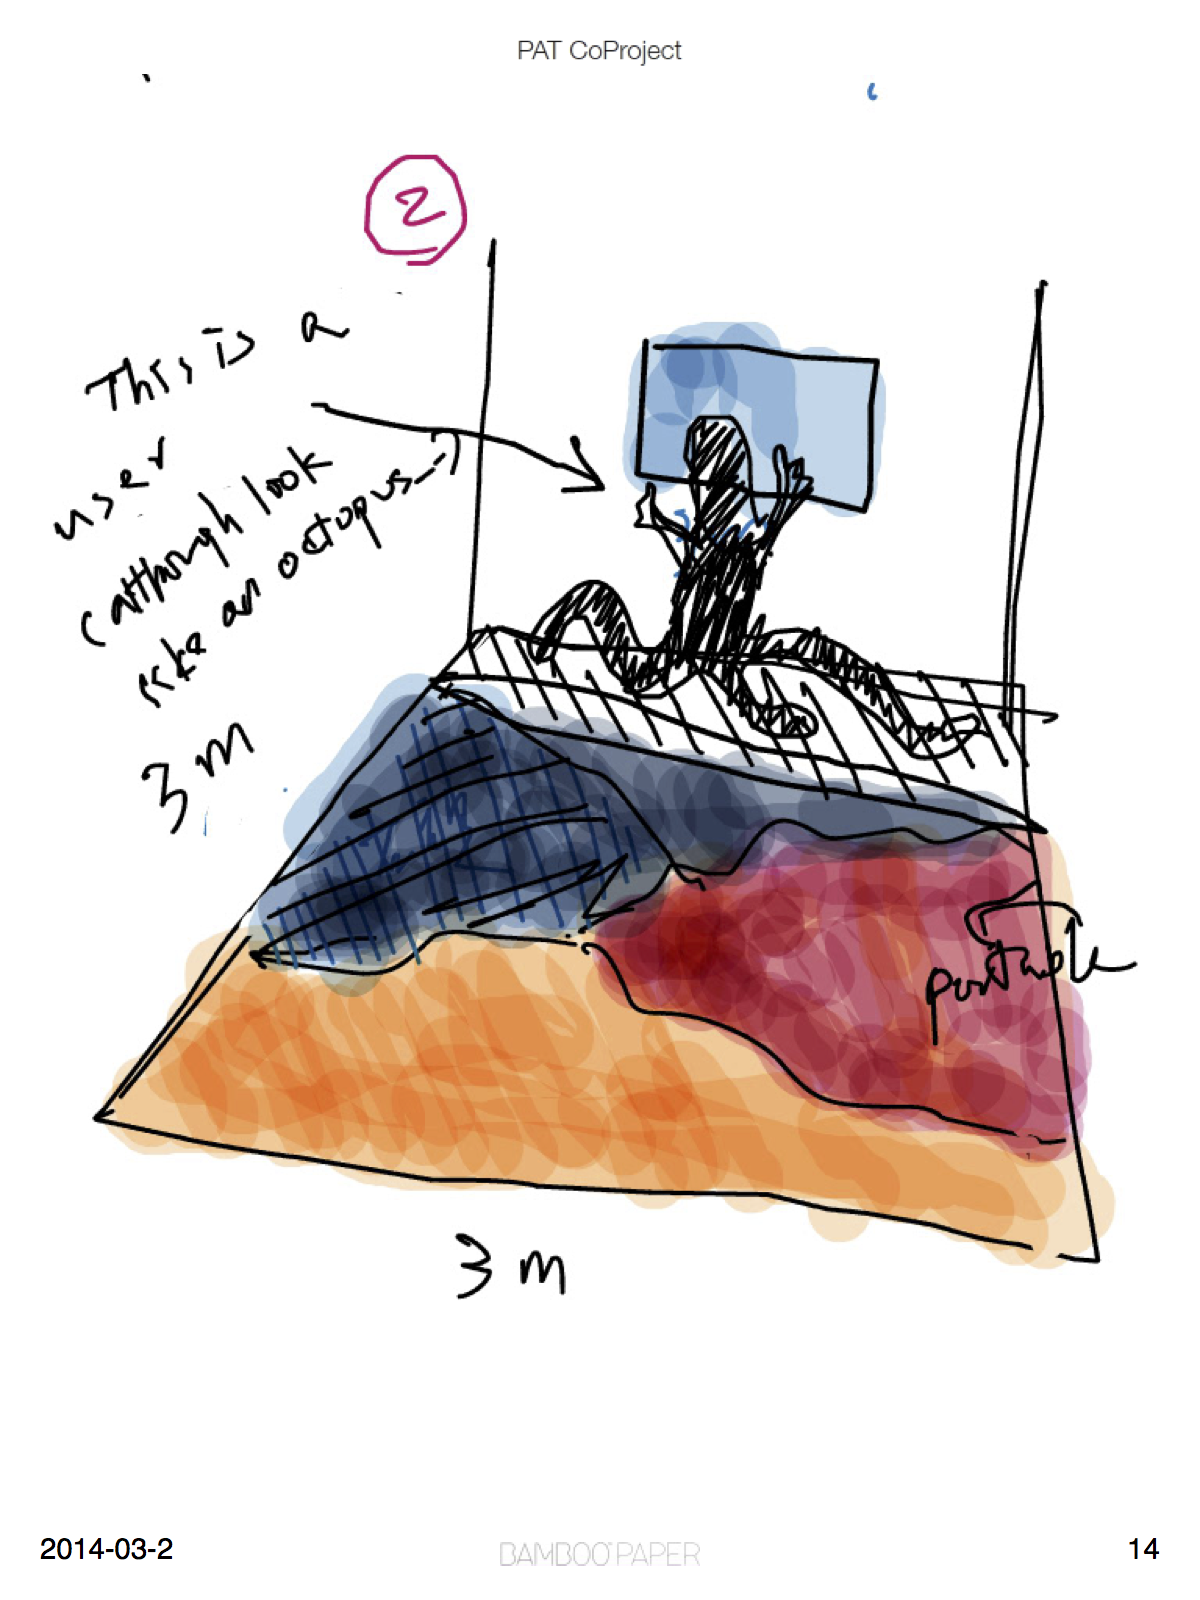 PAT CoProject
2
This is a
user
(although look
like an octopus--)
3 m
portable
3 m
2014-03-2
BAMBOO PAPER
14